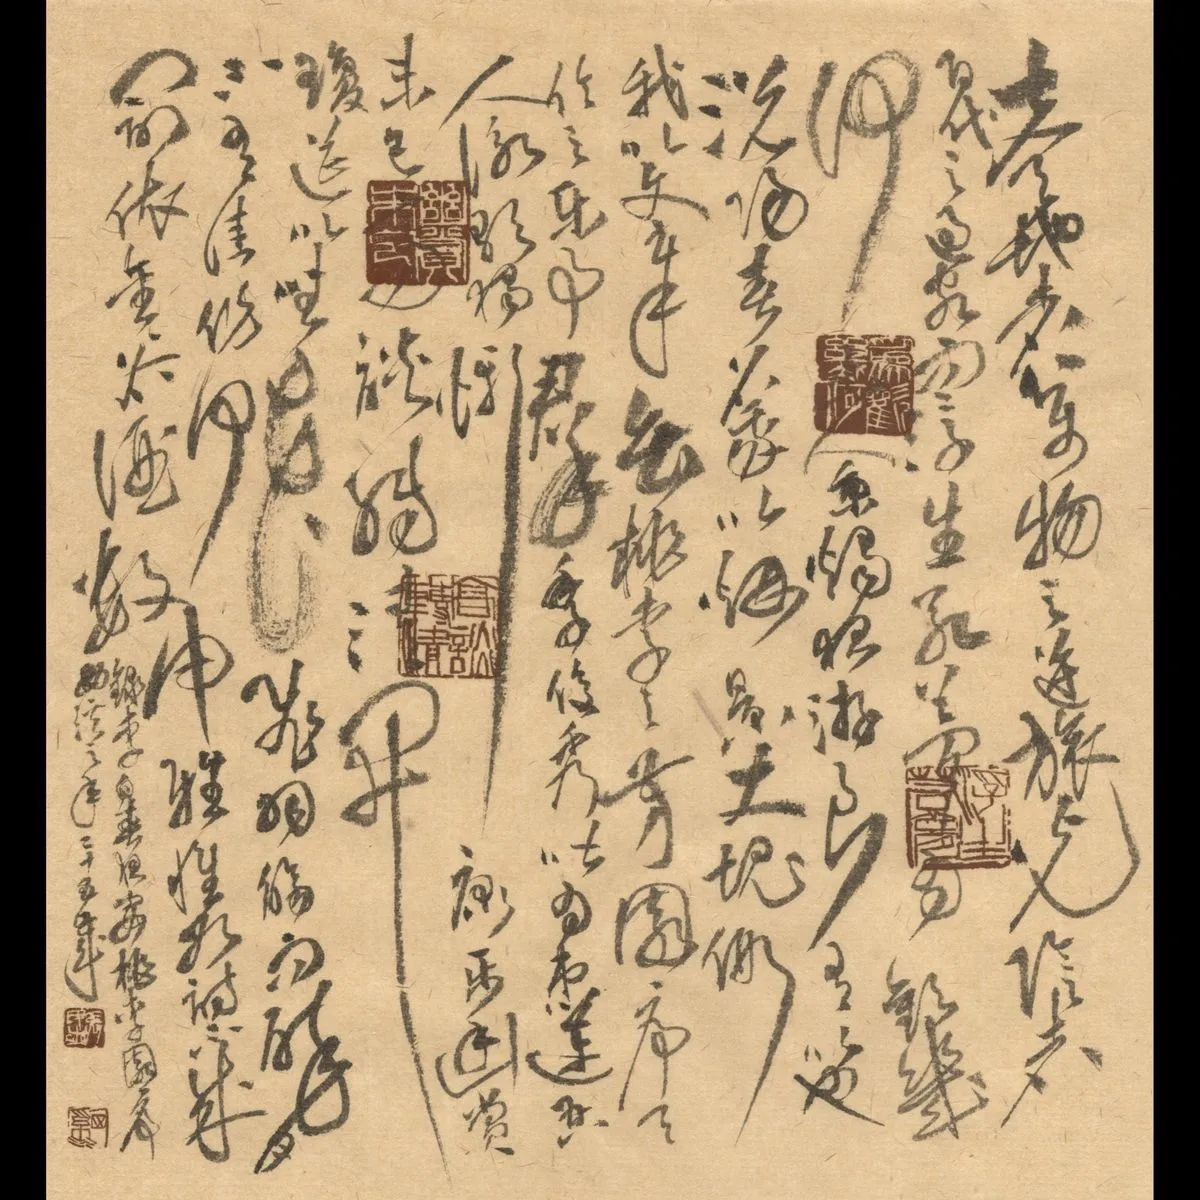 夫天地者萬物之逆旅光陰者
百代之過客而浮生若夢為歡幾
何古人秉燭夜遊良有以也
況陽春召我以煙景大塊假
我以文章會桃李之芳園序天
倫之樂事群季俊秀皆為惠連吾
人詠歌獨慚康樂幽賞
未已高談轉清開
瓊筵以坐花飛羽觴而醉月
不有佳作何伸雅懷如詩不成
罰依金谷酒數
錄李白春夜宴桃李園序
年二十五歲